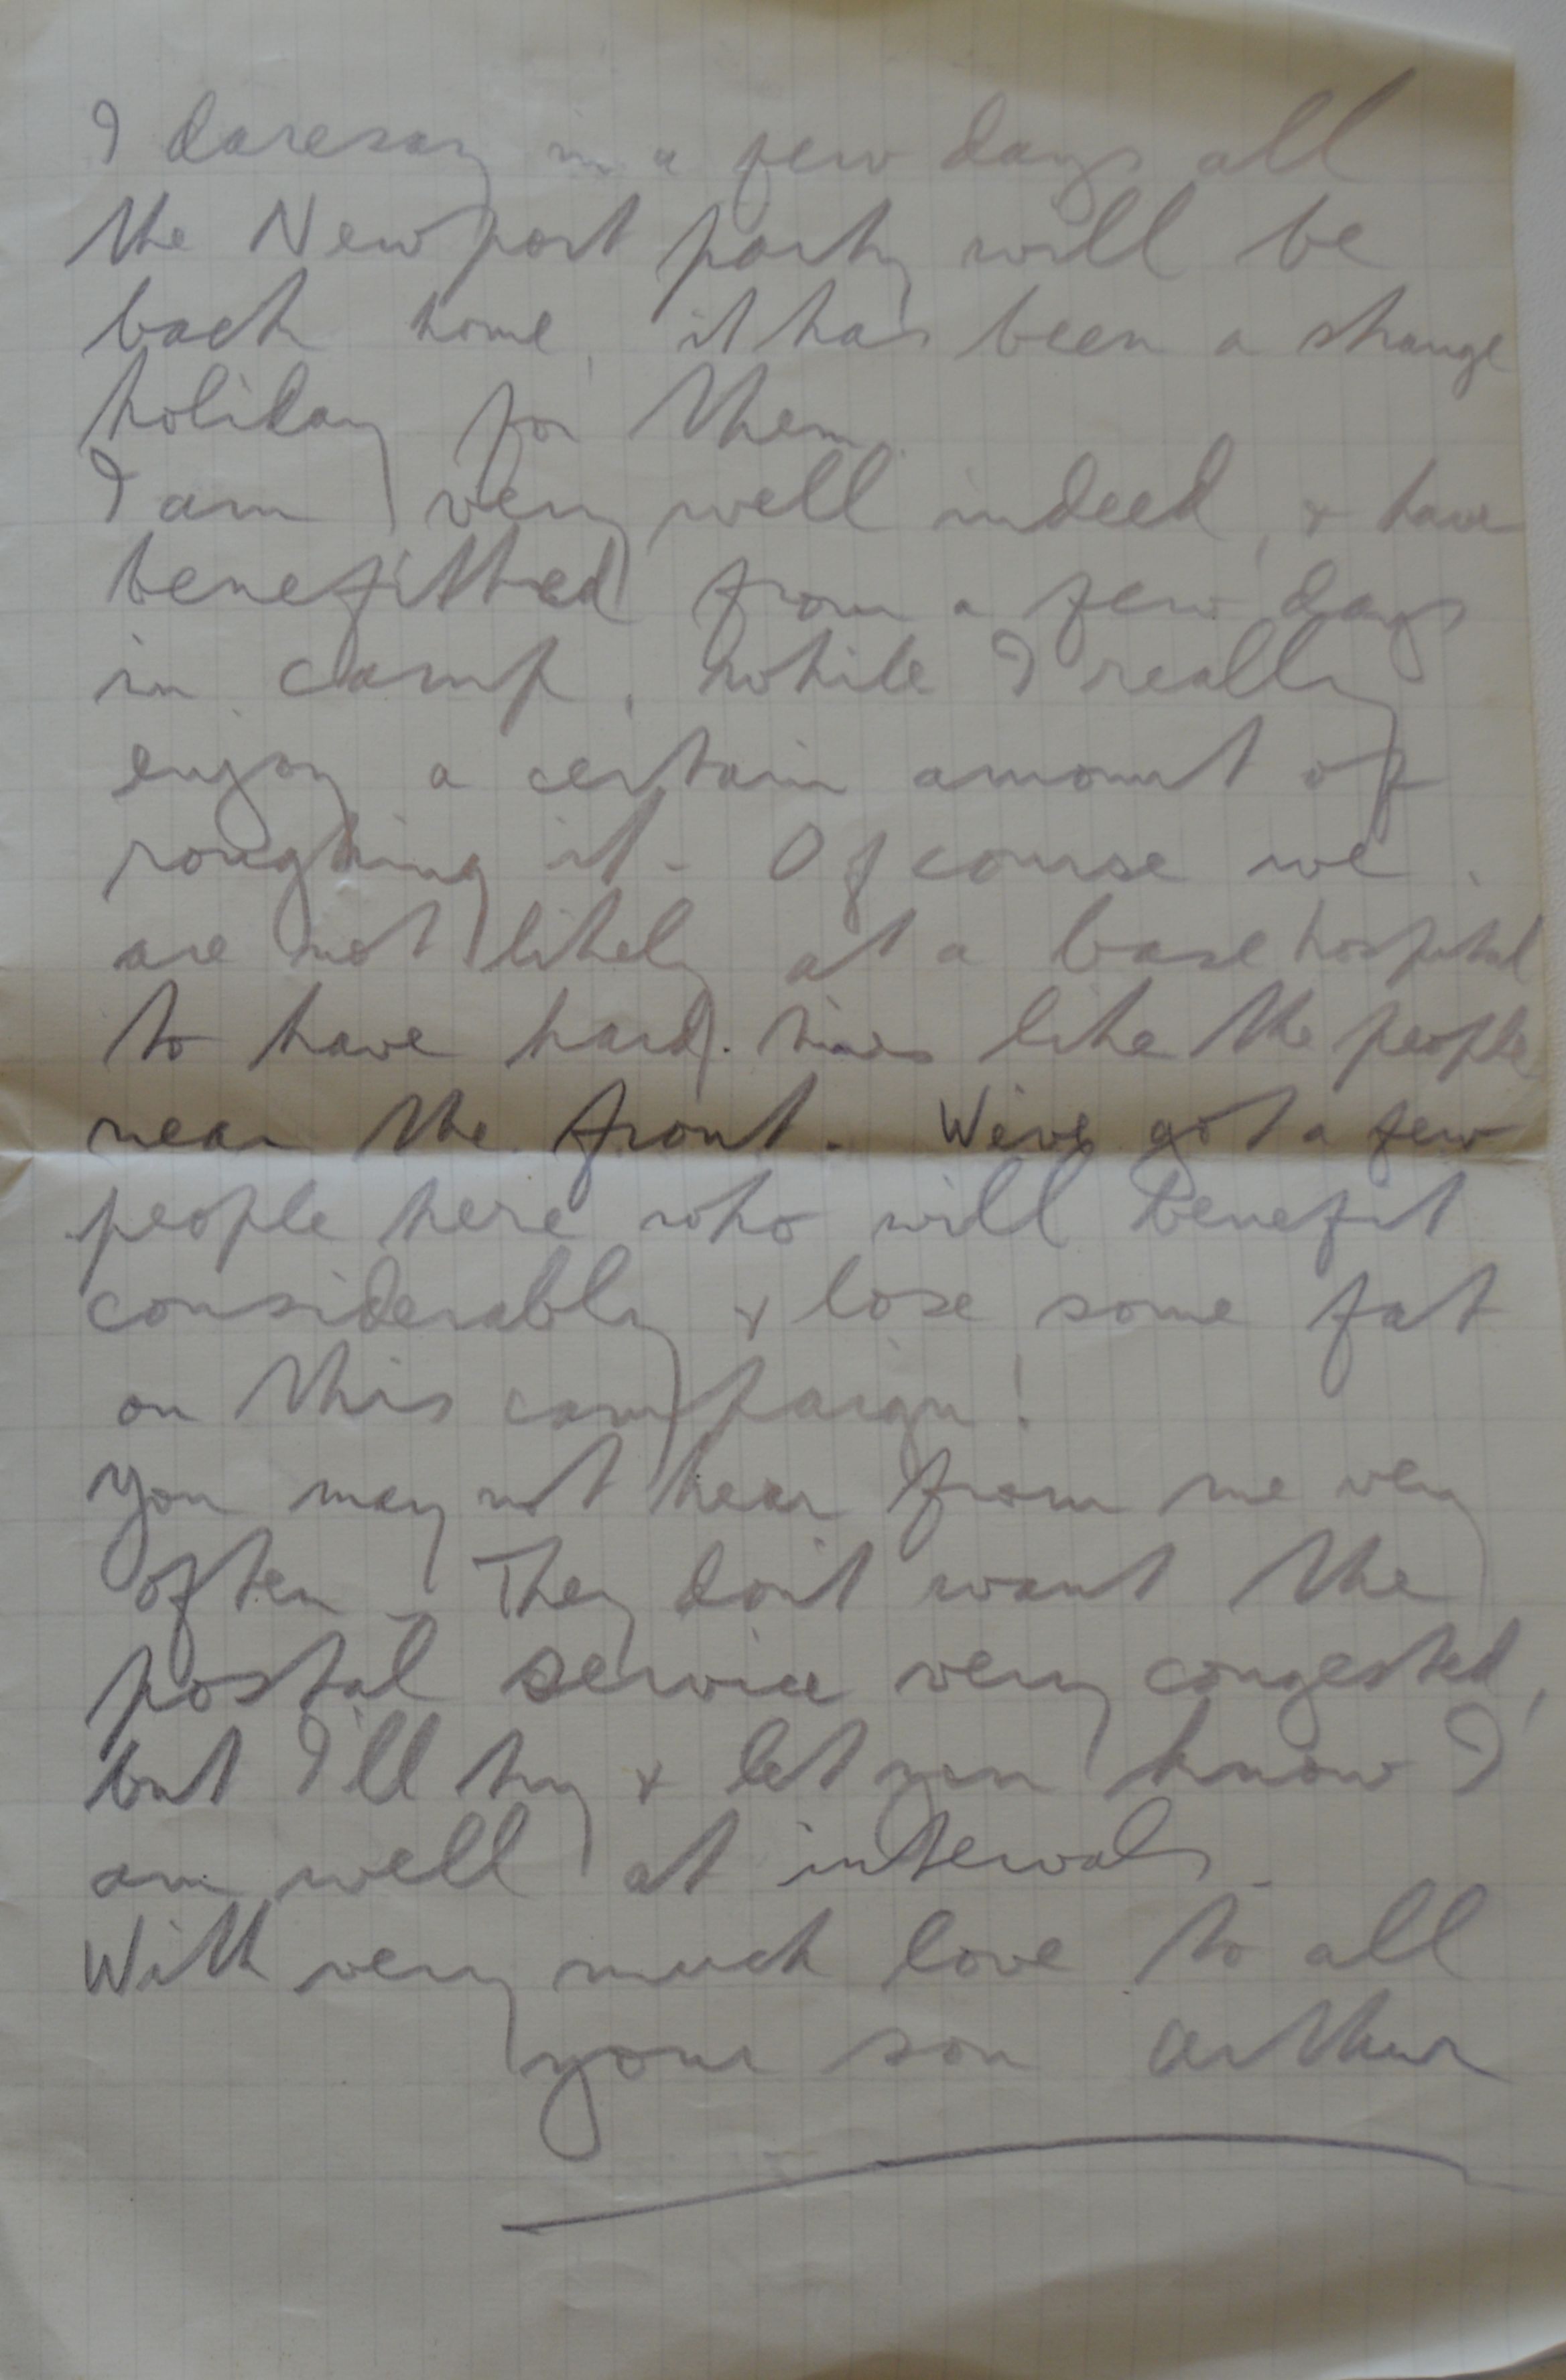 I daresay in a few days all
the Newport party will be
back home, it has been a strange
holiday for them.
I am very well indeed, & have
benefitted from a few days
in camp, while I really
enjoy a certain amount of
roughing it. Of course we
are not likely at a base hospital
to have hard times like the people
near the front. We've got a few
people here who will benefit
considerably & lose some fat
on this campaign!
You may not hear from me very
often. They don't want the
postal service very congested,
but I'll try & let you know I
am well at intervals.
With very much love to all
your son Arthur